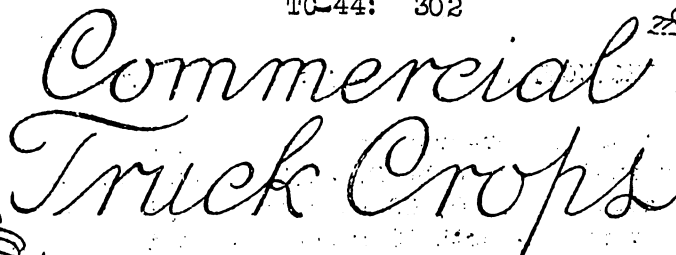 TC-44: 302
Commercial
Truck Crops